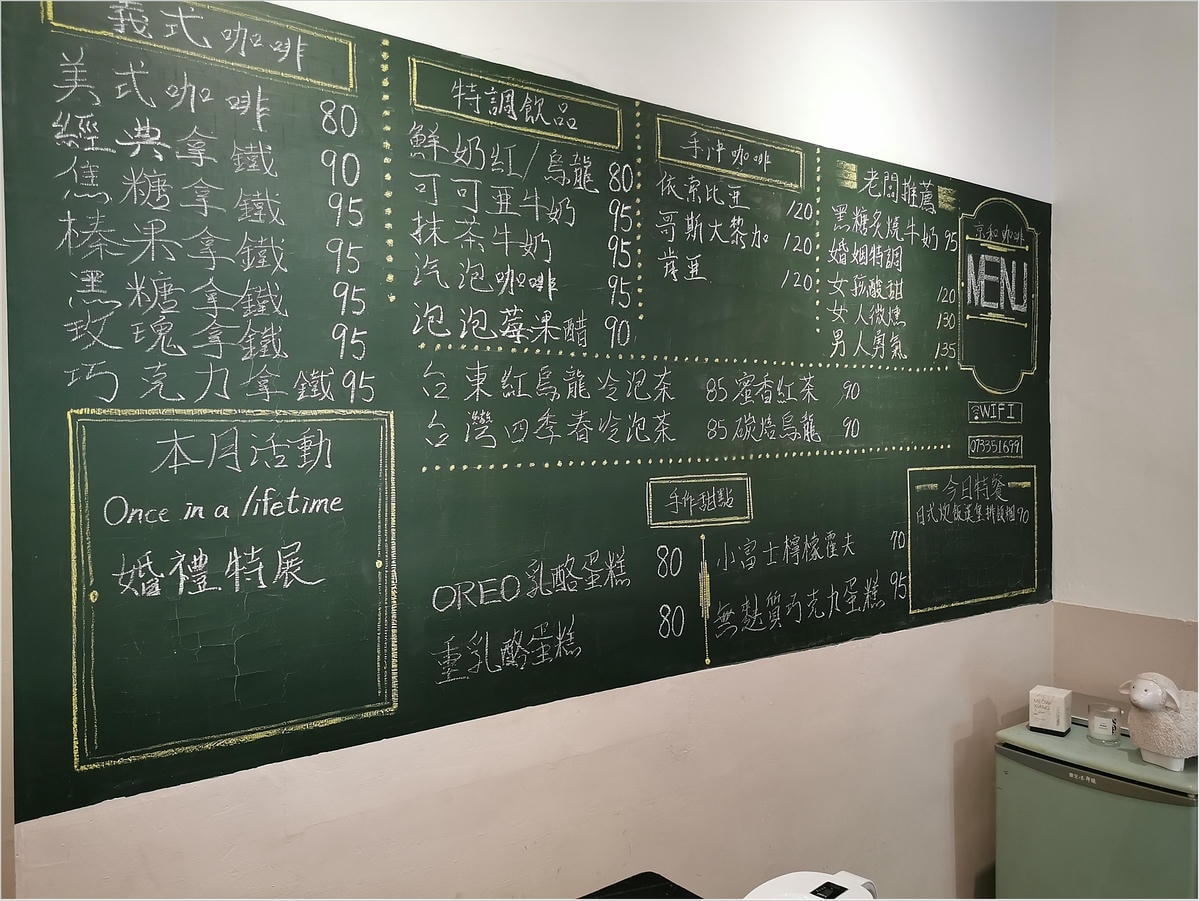 義式咖啡
美式咖啡 80
經典拿鐵 90
焦糖拿鐵 95
榛果拿鐵 95
黑糖拿鐵 95
玫瑰拿鐵 95
巧克力拿鐵 95
本月活動
Once in a lifetime
婚禮特展
特調飲品
鮮奶紅/烏龍 80
可可亚牛奶 95
抹茶牛奶 95
汽泡咖啡 95
泡泡莓果醋 90
手沖咖啡
依索比亚 120
哥斯大黎加 120
肯亚 120
老闆推薦
黑糖炙燒牛奶 95
婚姻特調
女孩酸甜 120
女人微燻 130
男人勇氣 135
台東紅烏龍冷泡茶 85 蜜香紅茶 90
台灣四季春冷泡茶 85 碳焙烏龍 90
手作甜點
OREO乳酪蛋糕 80
重乳酪蛋糕 80
小富士檸檬霍夫 70
無麩質巧克力蛋糕 95
京和咖啡
MENU
WIFI
073351699
今日特餐
日式炊飯漢堡排飯糰 90